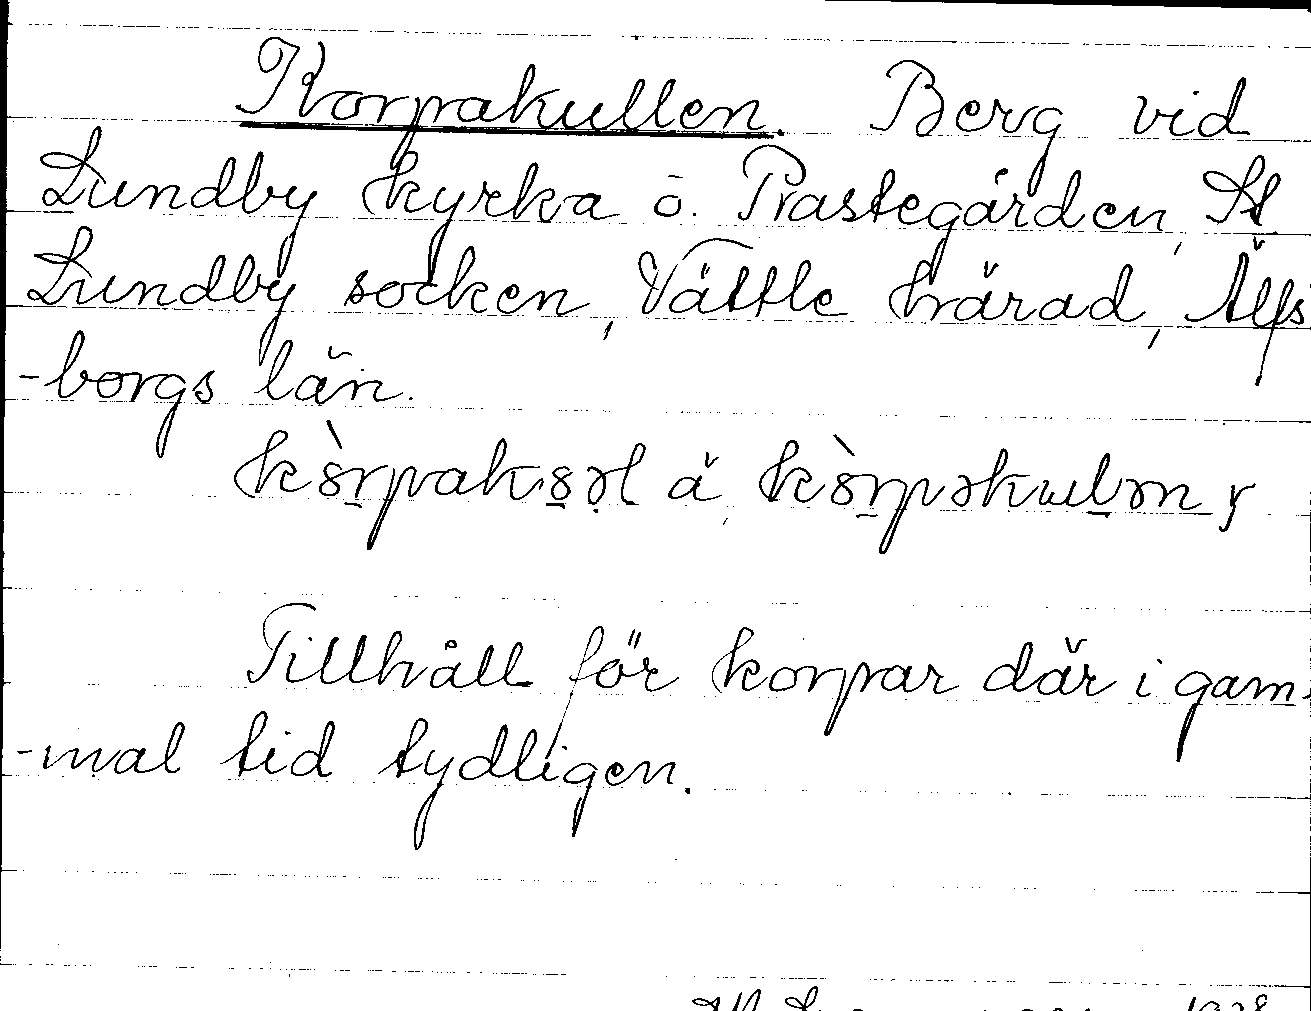 Korpakullen. Berg vid
Lundby kyrka ö. Prästegården, St
Lundby socken, Vättle härad, Älfs
-borgs län.
Tillhåll för korpar där i gam-
-mal tid tydligen.